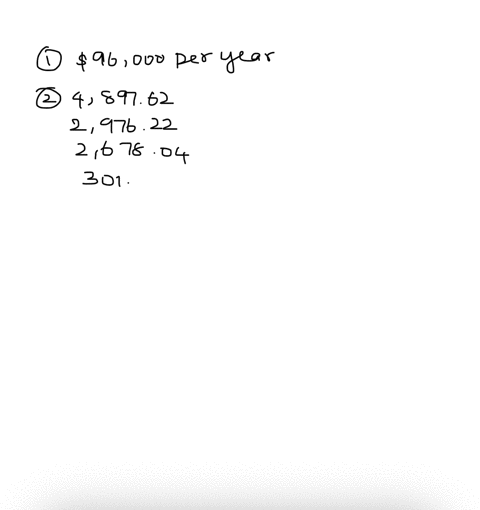 ① $96,000 per year
② 4,897.62
2,976.22
2,678.04
301.